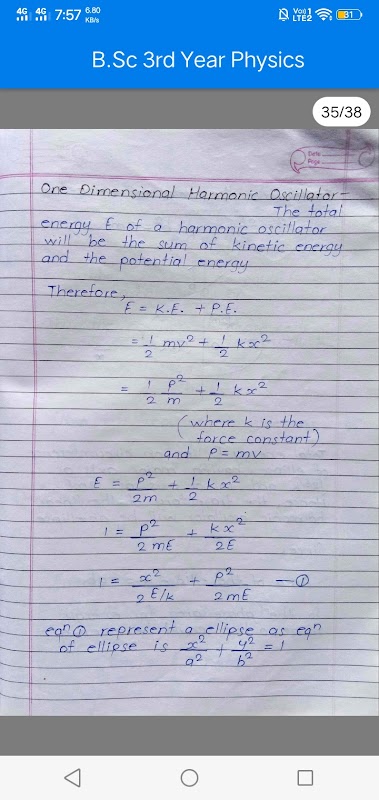 4G 4G 7:57 6.80 KB/s Vo) 1 LTE2 31
B.Sc 3rd Year Physics
35/38
Date
Page
One Dimensional Harmonic Oscillator-
The total
energy E of a harmonic oscillator
will be the sum of kinetic energy
and the potential energy
Therefore,
E = K.E. + P.E.
= 1/2 mv² + 1/2 kx²
= 1/2 p²/m + 1/2 kx²
(where k is the
force constant)
and P = mv
E = p²/2m + 1/2 kx²
1 = p²/2mE + kx²/2E
1 = x²/2E/k + p²/2mE —①
eqⁿ ① represent a ellipse as eqⁿ
of ellipse is x²/a² + y²/b² = 1